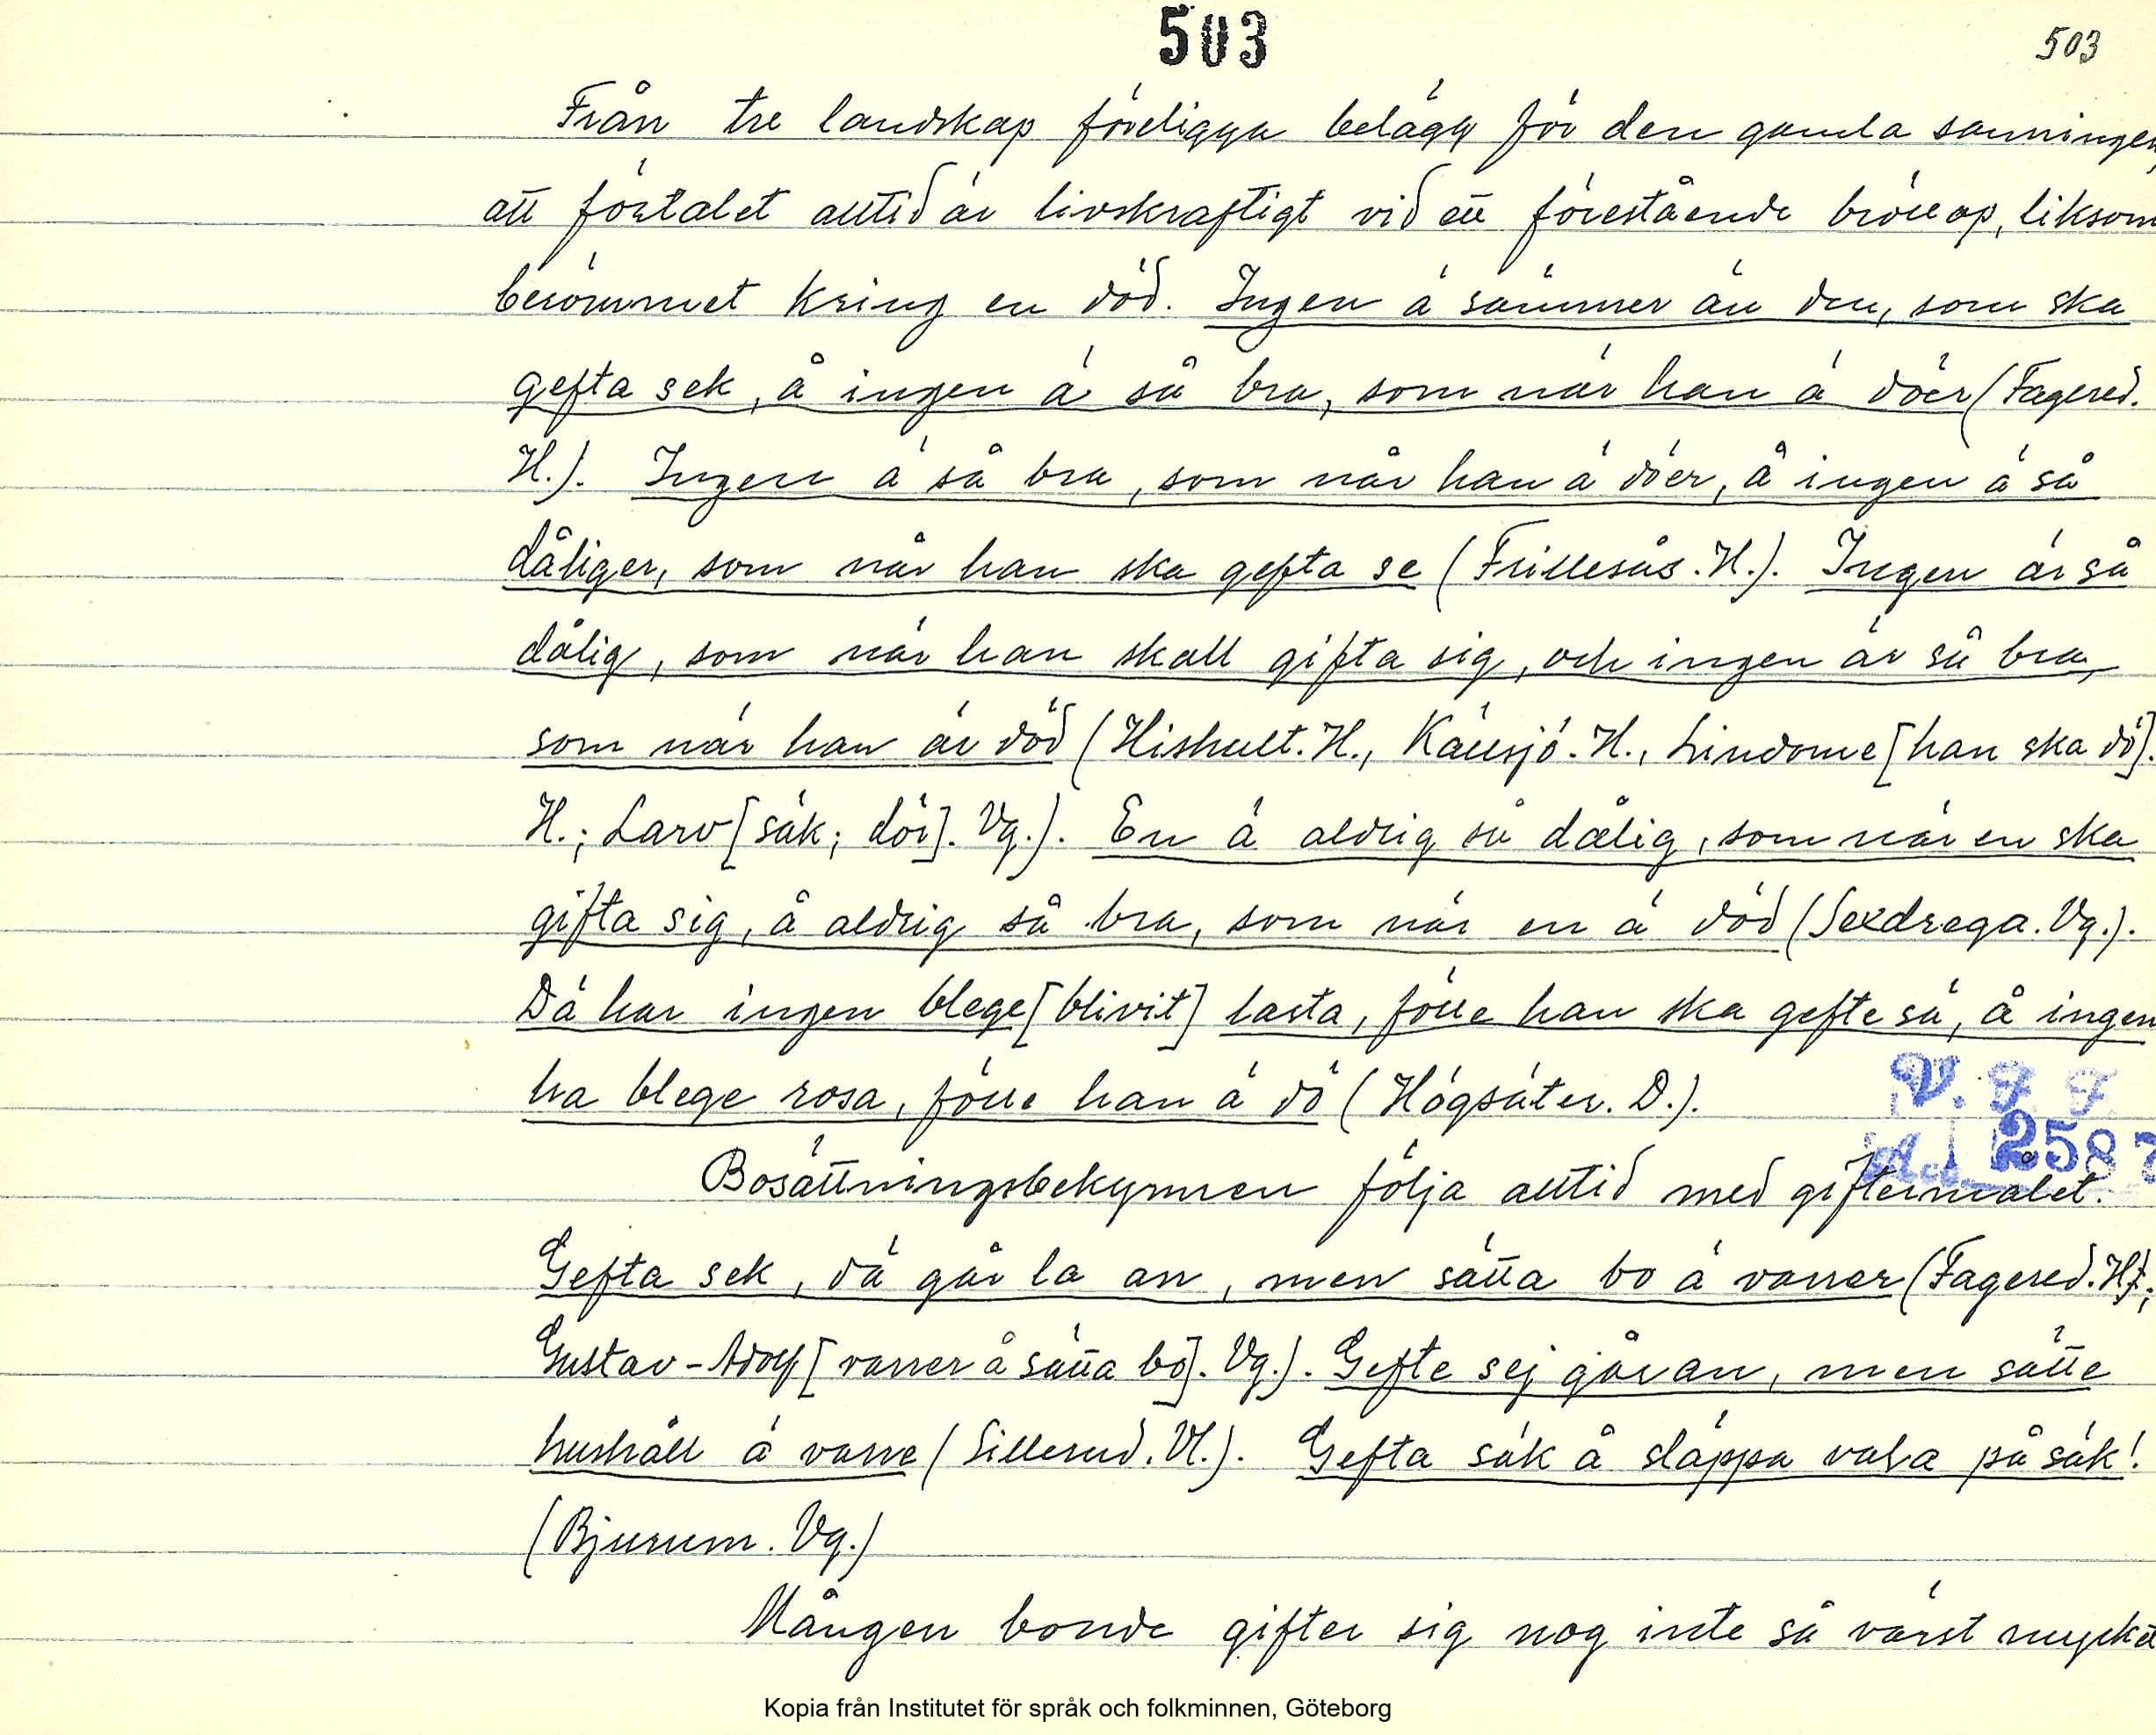 503
503
Från tre landskap föreligga belägg för den gamla sanningen,
att förtalet alltid är livskraftigt vid ett förestående bröllop, liksom
berömmet kring en död. Ingen ä sämmer än den, som ska
gefta sek, å ingen ä så bra, som när han ä döer (Fagered.
H.). Ingen ä så bra, som når han ä döer, å ingen ä så
dåliger, som når han ska gefta se (Frillesås. H.). Ingen är så
dålig, som när han skall gifta sig, och ingen är så bra,
som när han är död (Hishult. H., Källsjö. H., Lindome [han ska dö].
H.; Larv [säk; dör]. Vg.). En ä aldrig så dålig, som när en ska
gifta sig, å aldrig så bra, som när en ä död (Sexdrega. Vg.).
Dä har ingen blege [blivit] lasta, fölle han ska gefte sä, å ingen
ha blege rosa, fölle han ä dö (Högsäter. D.).
V. F. F.
Acc. 2587
Bosättningsbekymren följa alltid med giftermålet.
Gefta sek, dä går la an, men sätta bo ä varrer (Fagered. H.;
Gustav-Adolf [varrer å sätta bo]. Vg.). Gefte sej går an, men sätte
hushåll ä varre (Sillerud. Vl.). Gefta säk å släppa vala på säk!
(Bjurum. Vg.)
Mången bonde gifter sig nog inte så värst mycket
Kopia från Institutet för språk och folkminnen, Göteborg